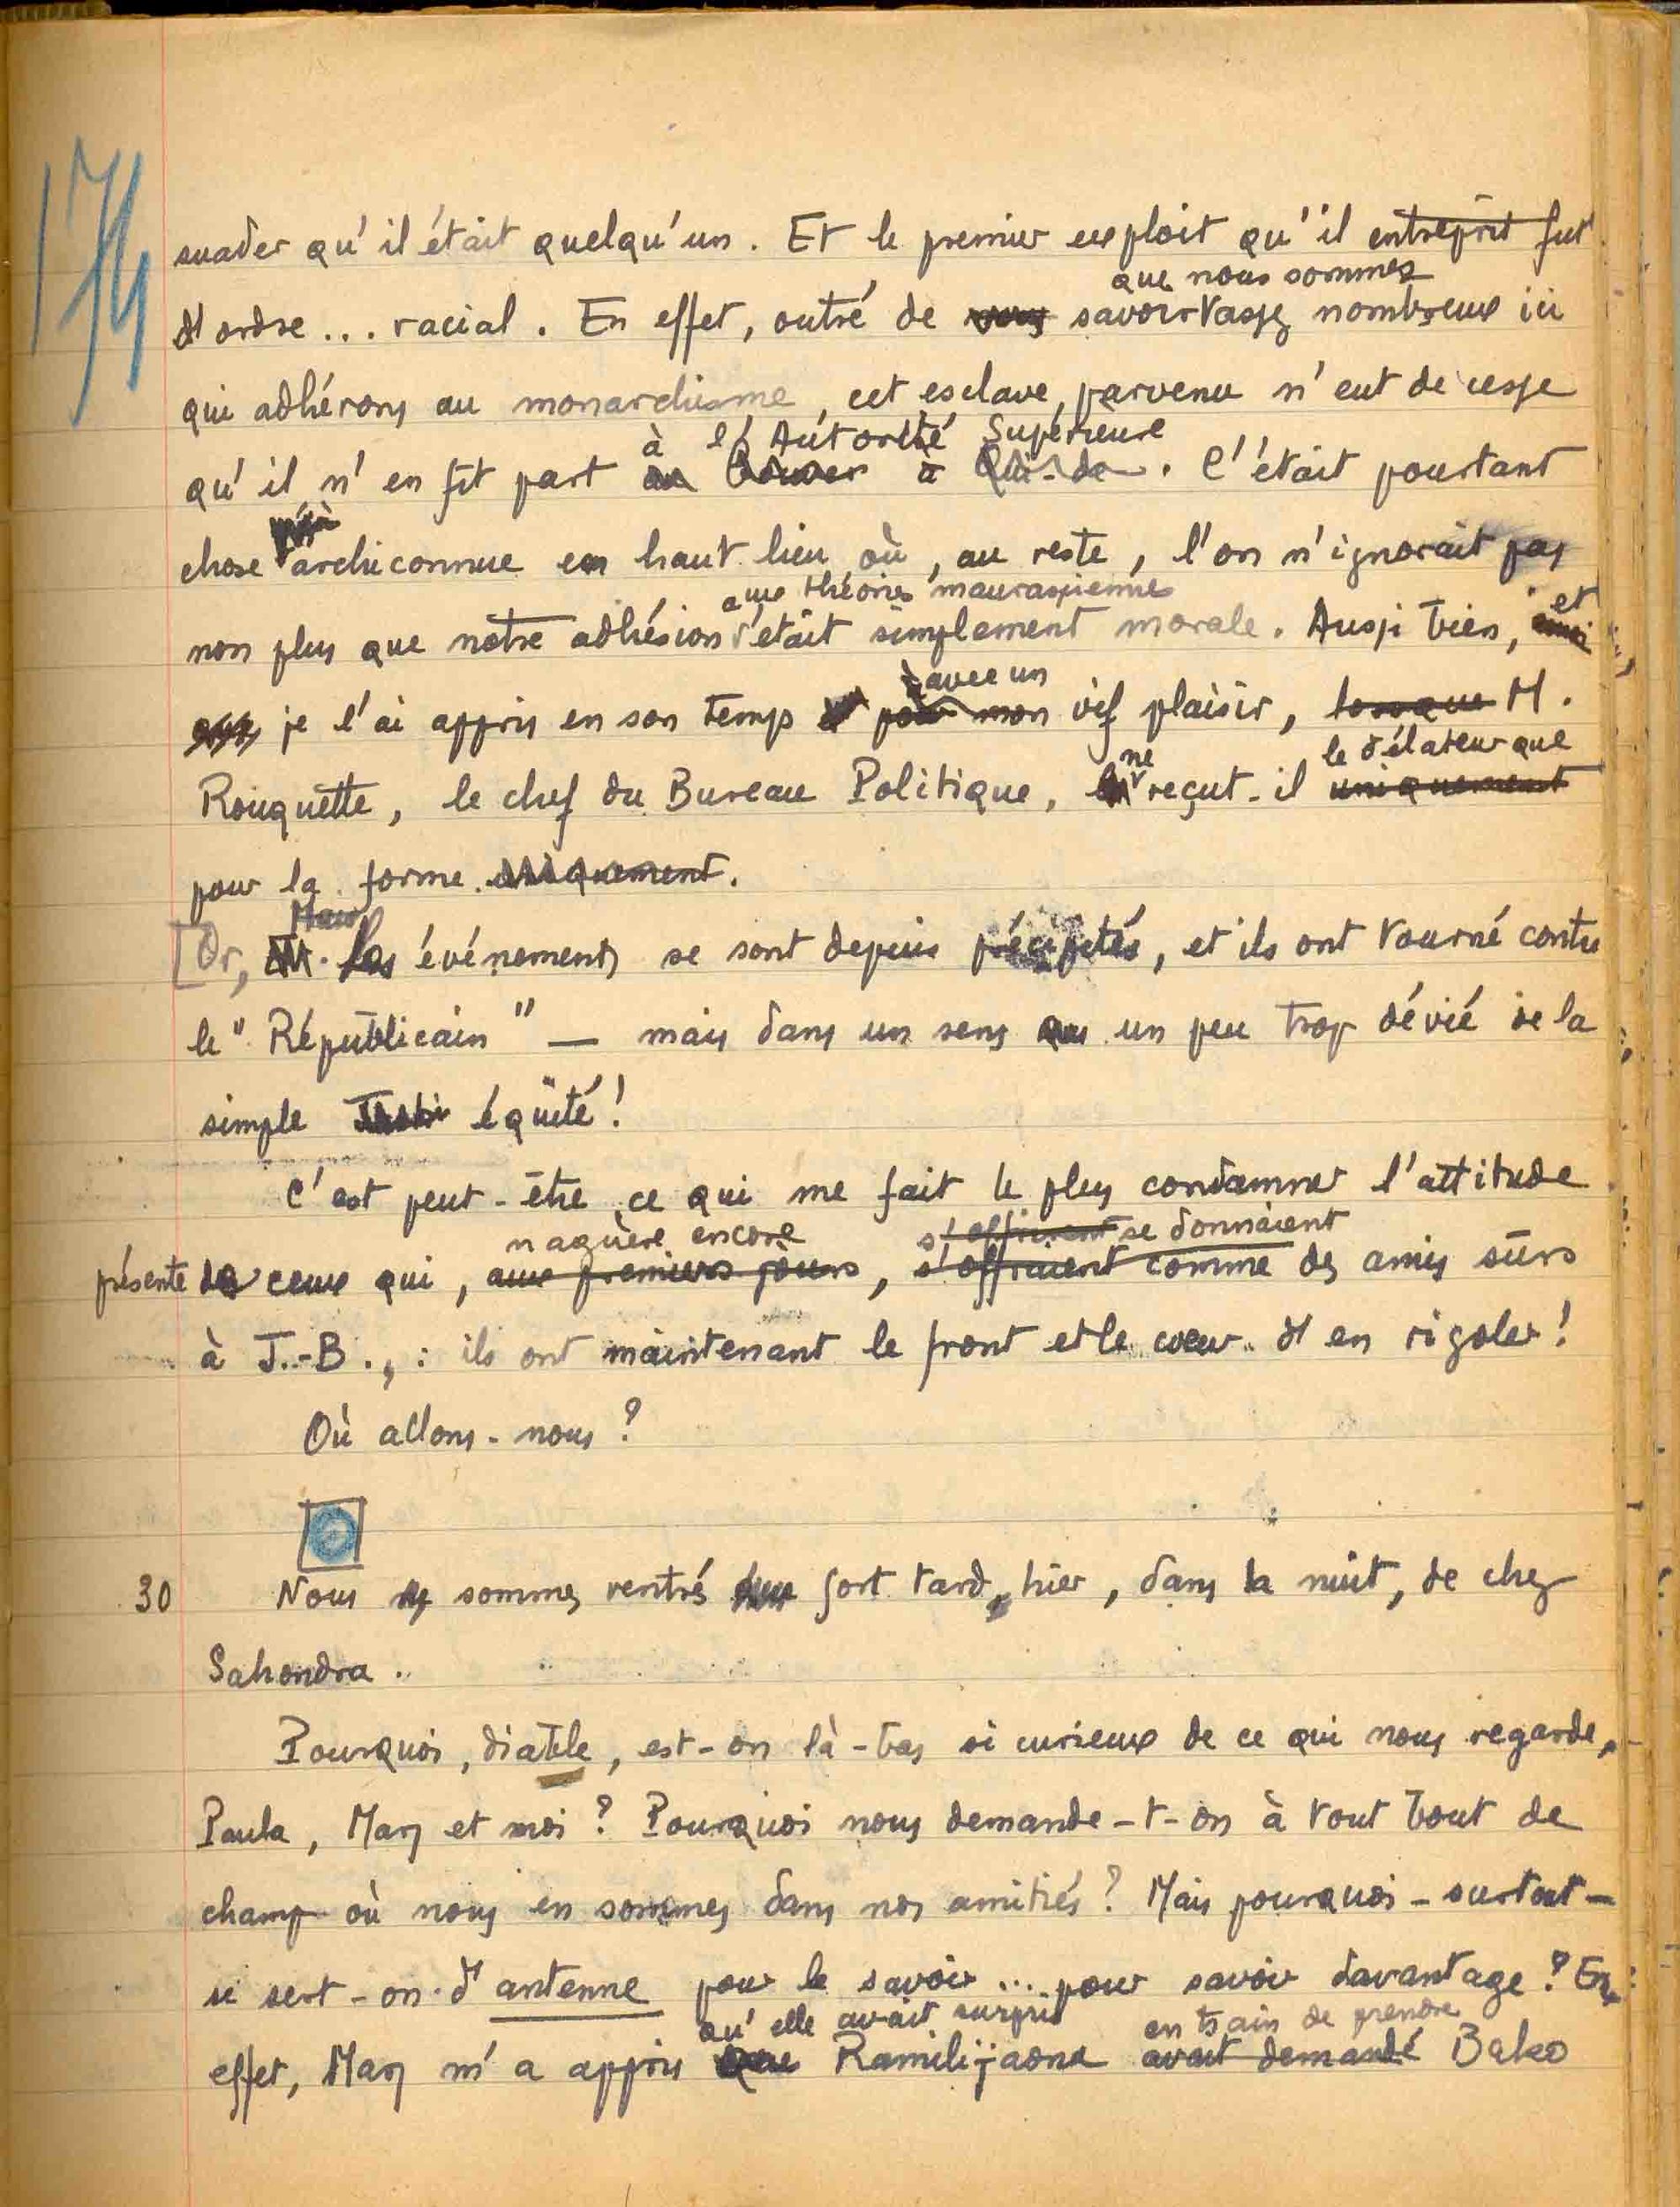 174
suader qu'il était quelqu'un. Et le premier exploit qu'il entreprit fut
que nous sommes
d'ordre... racial. En effet, outré de savoir assez nombreux ici
qui adhérons au monarchisme, cet esclave parvenu n'eut de cesse
à l'Autorité Supérieure
qu'il n'en fit part au à. C'était pourtant
déjà
chose archiconnue en haut lieu où, au reste, l'on n'ignorait pas
aux théories maurassiennes
non plus que notre adhésion était simplement morale. Aussi bien, et
avec un
je l'ai appris en son temps et pour mon vif plaisir, lorsque M.
ne le délateur que
Rouquette, le chef du Bureau Politique, reçut-il uniquement
pour la forme. uniquement.
Mais
[Or, M. les événements se sont depuis précipités, et ils ont tourné contre
le "Républicain" — mais dans un sens un peu trop dévié de la
simple équité!
C'est peut-être ce qui me fait le plus condamner l'attitude
naguère encore s'offrirent se donnaient
présente de ceux qui, aux premiers jours, s'offraient comme des amis sûrs
à J.-B., : ils ont maintenant le front et le cœur d'en rigoler!
Où allons-nous?
30 Nous sommes rentrés fort tard, hier, dans la nuit, de chez
Sahondra.
Pourquoi, diable, est-on là-bas si curieux de ce qui nous regarde,
Paula, Mary et moi? Pourquoi nous demande-t-on à tout bout de
champ où nous en sommes dans nos amitiés? Mais pourquoi – surtout –
se sert-on d'antenne pour le savoir... pour savoir davantage? En
qu'elle avait surpris en train de prendre
effet, Mary m'a appris que Ramilijaona avait demandé Bako